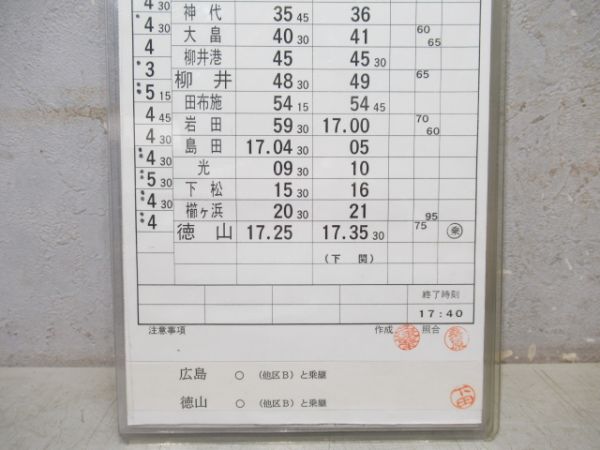 4 30
神代 35 45 36
4 30
大畠 40 30 41 60 65
4
柳井港 45 45 30
3
柳井 48 30 49 65
5 15
田布施 54 15 54 45
4 45
岩田 59 30 17.00 70 60
4 30
島田 17.04 30 05
4 30
光 09 30 10
5 30
下松 15 30 16
4 30
櫛ヶ浜 20 30 21 95
4
徳山 17.25 17.35 30 75 乗
(下関)
終了時刻
17:40
注意事項 作成 照合
広島 ○ (他区B) と乗継
徳山 ○ (他区B) と乗継